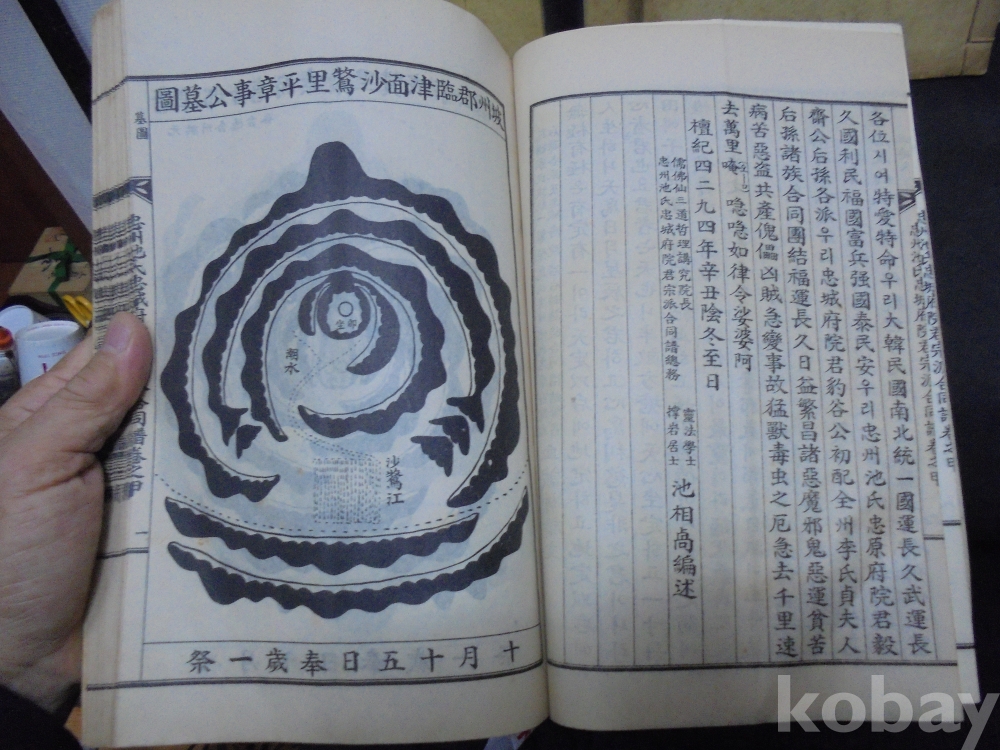 各位시여特愛特命우리大韓民國南北統一國運長久武運長
久國利民福國富兵强國泰民安우리忠州池氏忠原府院君毅
齋公后孫各派우리忠城府院君豹谷公初配全州李氏貞夫人
后孫諸族合同團結福運長久日益繁昌諸惡魔邪鬼惡運貧苦
病苦惡盜共產傀儡凶賊急變事故猛獸毒虫之厄急去千里速
去萬里唵急急如律令娑婆阿
檀紀四二九四年辛丑陰冬至日
儒佛仙三道哲理講究院長
忠州池氏忠城府院君宗派合同譜總務
靈法學士
撑岩居士
池相卨編述
坡州郡臨津面沙鶩里平章事公墓圖
墓圖
潮水
沙鶩江
十月十五日奉歲一祭
kobay